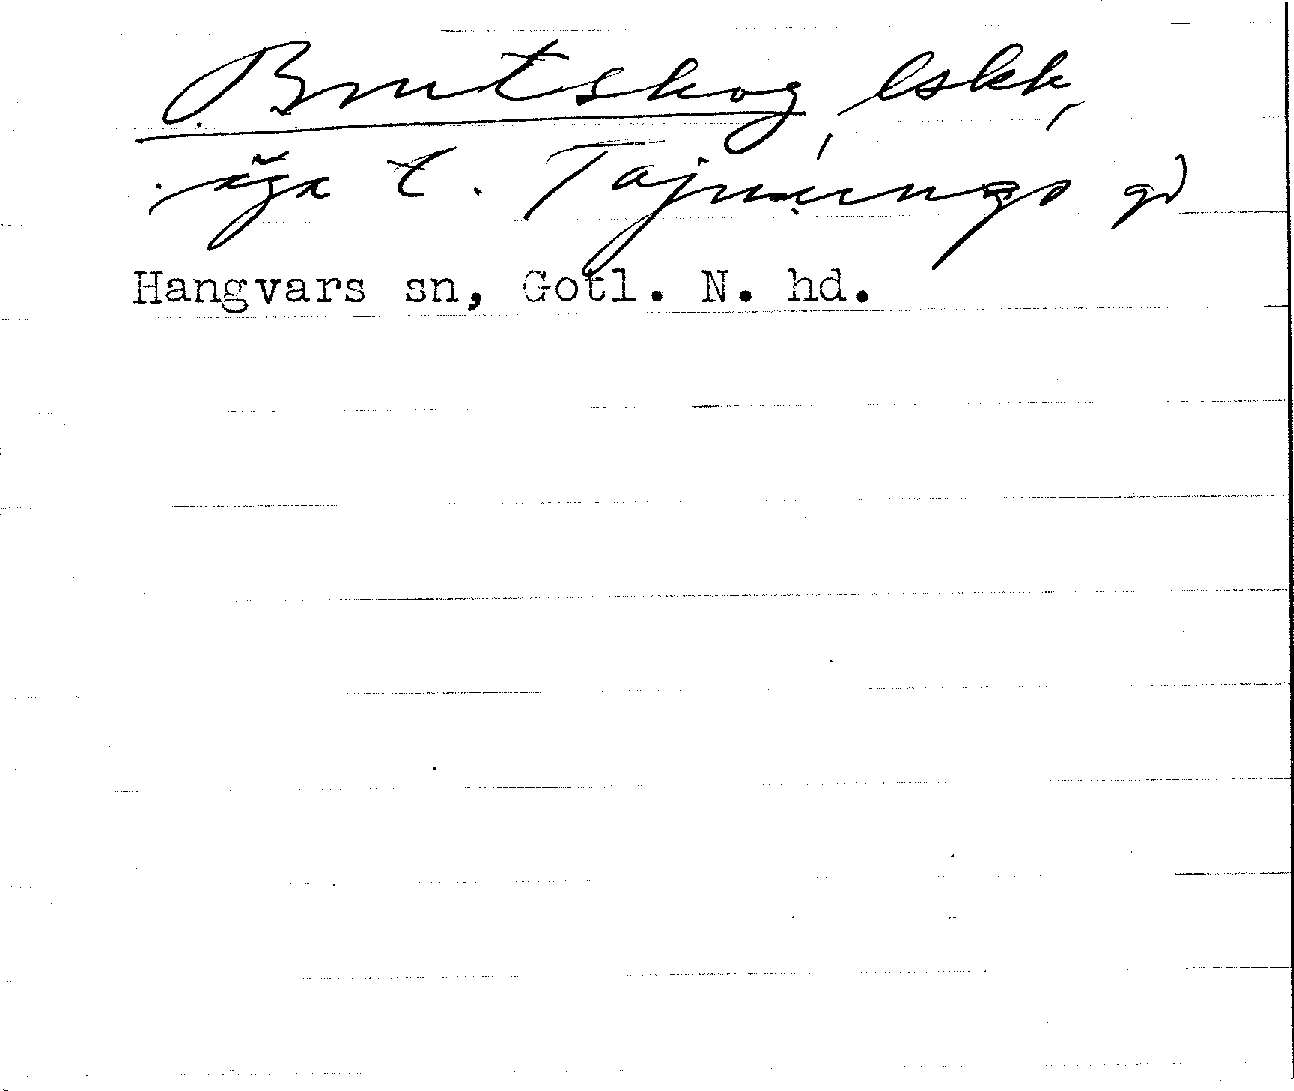 Brutskog, lskk,
äga t. Tajnungs gd
Hangvars sn, Gotl. N. hd.